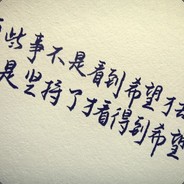 些事不是看到希望才
是坚持了才看得到希望